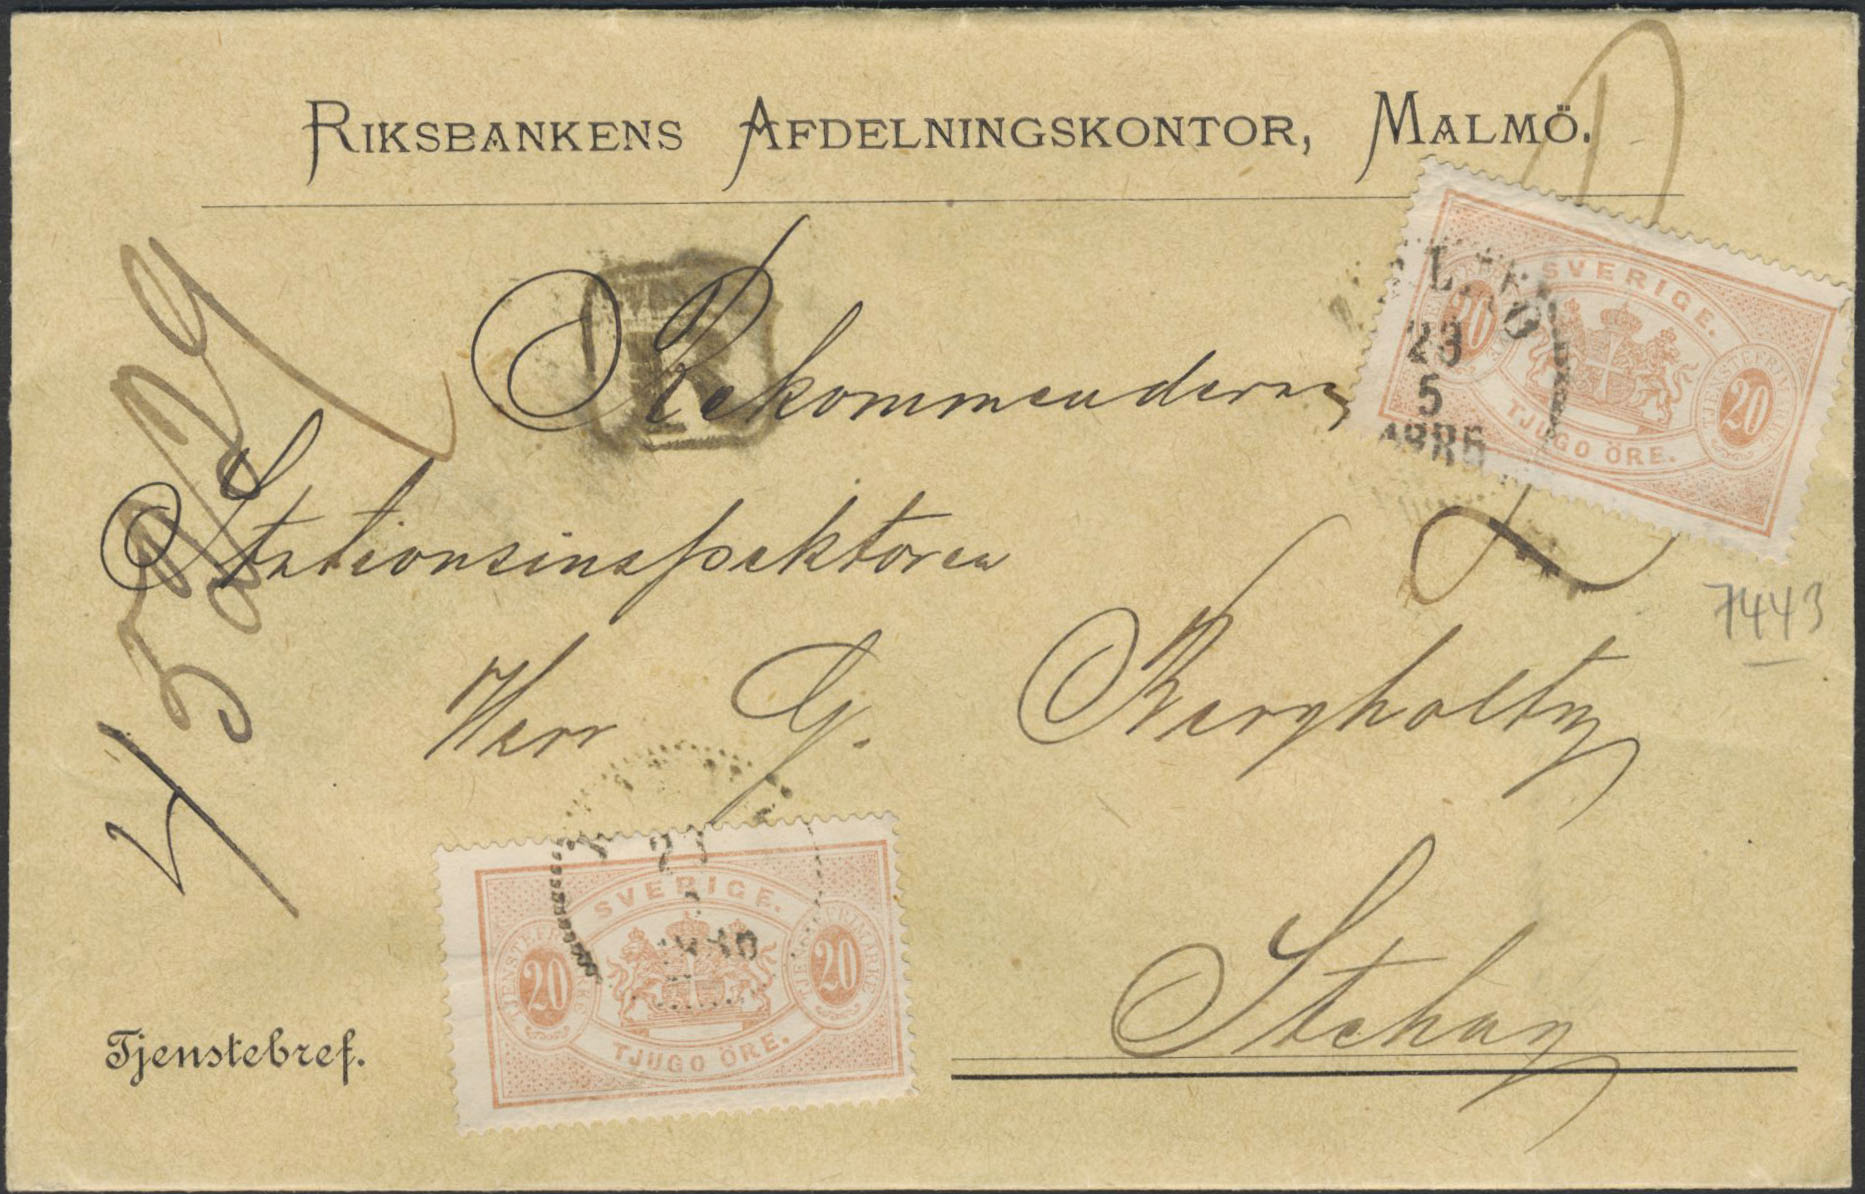 RIKSBANKENS AFDELNINGSKONTOR, MALMÖ.
R
Rekommenderas
SVERIGE.
20 20
TJUGO ÖRE.
23
5
1886
Stationsinspektoren
7443
Herr G. Bergholtz
SVERIGE.
20 20
TJUGO ÖRE.
Stehag
Tjenstebref.